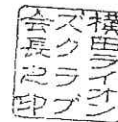 横田ライオン
ズクラブ
会長之印